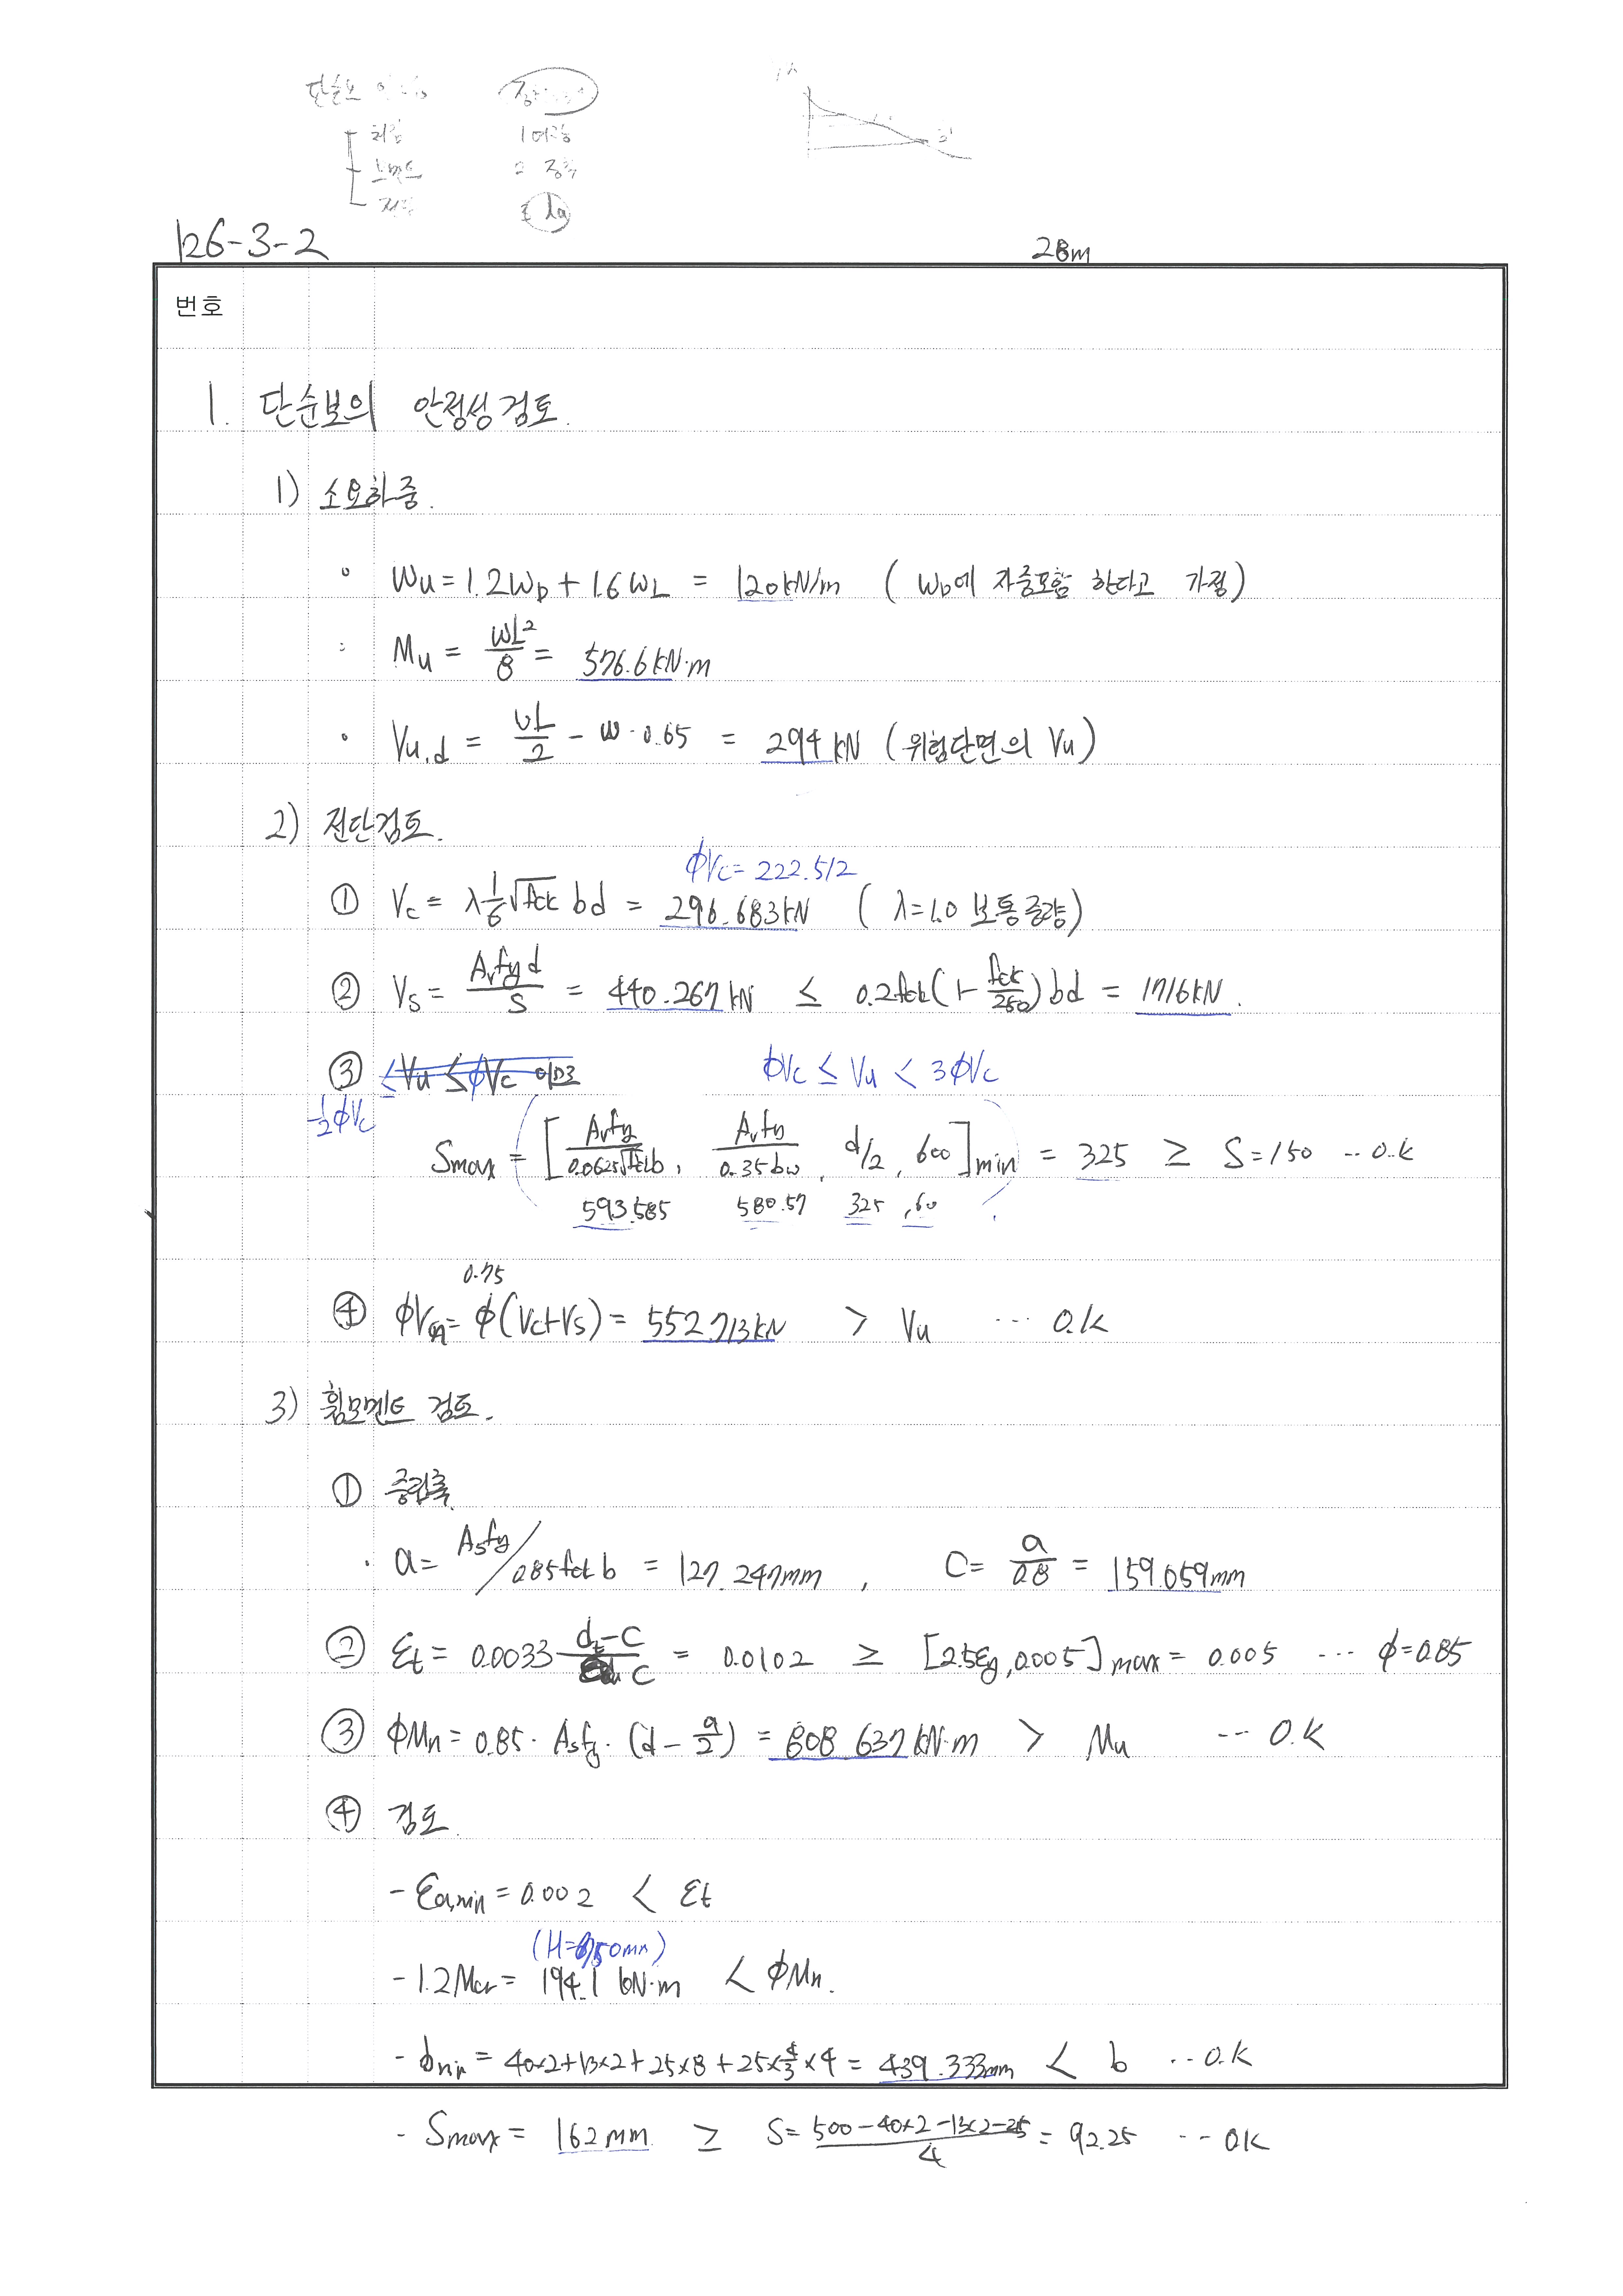 단순보
처짐 1 여유
2 증축
ld
126-3-2 28m
번호
1. 단순보의 안정성 검토.
1) 소요하중.
Wu = 1.2WD + 1.6WL = 120kN/m ( WD에 자중포함 한다고 가정)
Mu = wL²/8 = 576.6kN·m
Vu,d = wL/2 - w·0.65 = 294kN (위험단면의 Vu)
2) 전단검토.
ϕVc = 222.512
① Vc = λ 1/6 √fck bd = 296.683kN ( λ=1.0 보통중량)
② Vs = Avfyd/S = 440.267kN ≤ 0.2fck(1-fck/250)bd = 1716kN.
③ ≤Vu ≤ϕVc 이므로 ϕVc ≤ Vu < 3ϕVc
1/2ϕVc
Smax = [Avfy/0.0625√fck b, Avfy/0.35bw, d/2, 600]min = 325 ≥ S=150 ‥ O.K
593.585 580.57 325 , 60
0.75
④ ϕVn = ϕ(Vc+Vs) = 552.713kN > Vu … O.K
3) 휨모멘트 검토.
① 중립축
· a = Asfy/0.85fck b = 127.247mm , C = a/0.8 = 159.059mm
② Ɛt = 0.0033 dt-C/C = 0.0102 ≥ [2.5Ɛy, 0.005]max = 0.005 … ϕ=0.85
③ ϕMn = 0.85·Asfy·(d - a/2) = 808.637kN·m > Mu ‥ O.K
④ 검토
- Ɛa,min = 0.002 < Ɛt
(H=750mm)
- 1.2Mcr = 194.1 kN·m < ϕMn.
- bmin = 40×2+13×2+25×8+25×4/3×4 = 439.333mm < b ‥ O.K
- Smax = 162mm ≥ S = 500-40×2-13×2-25/4 = 92.25 ‥ OK